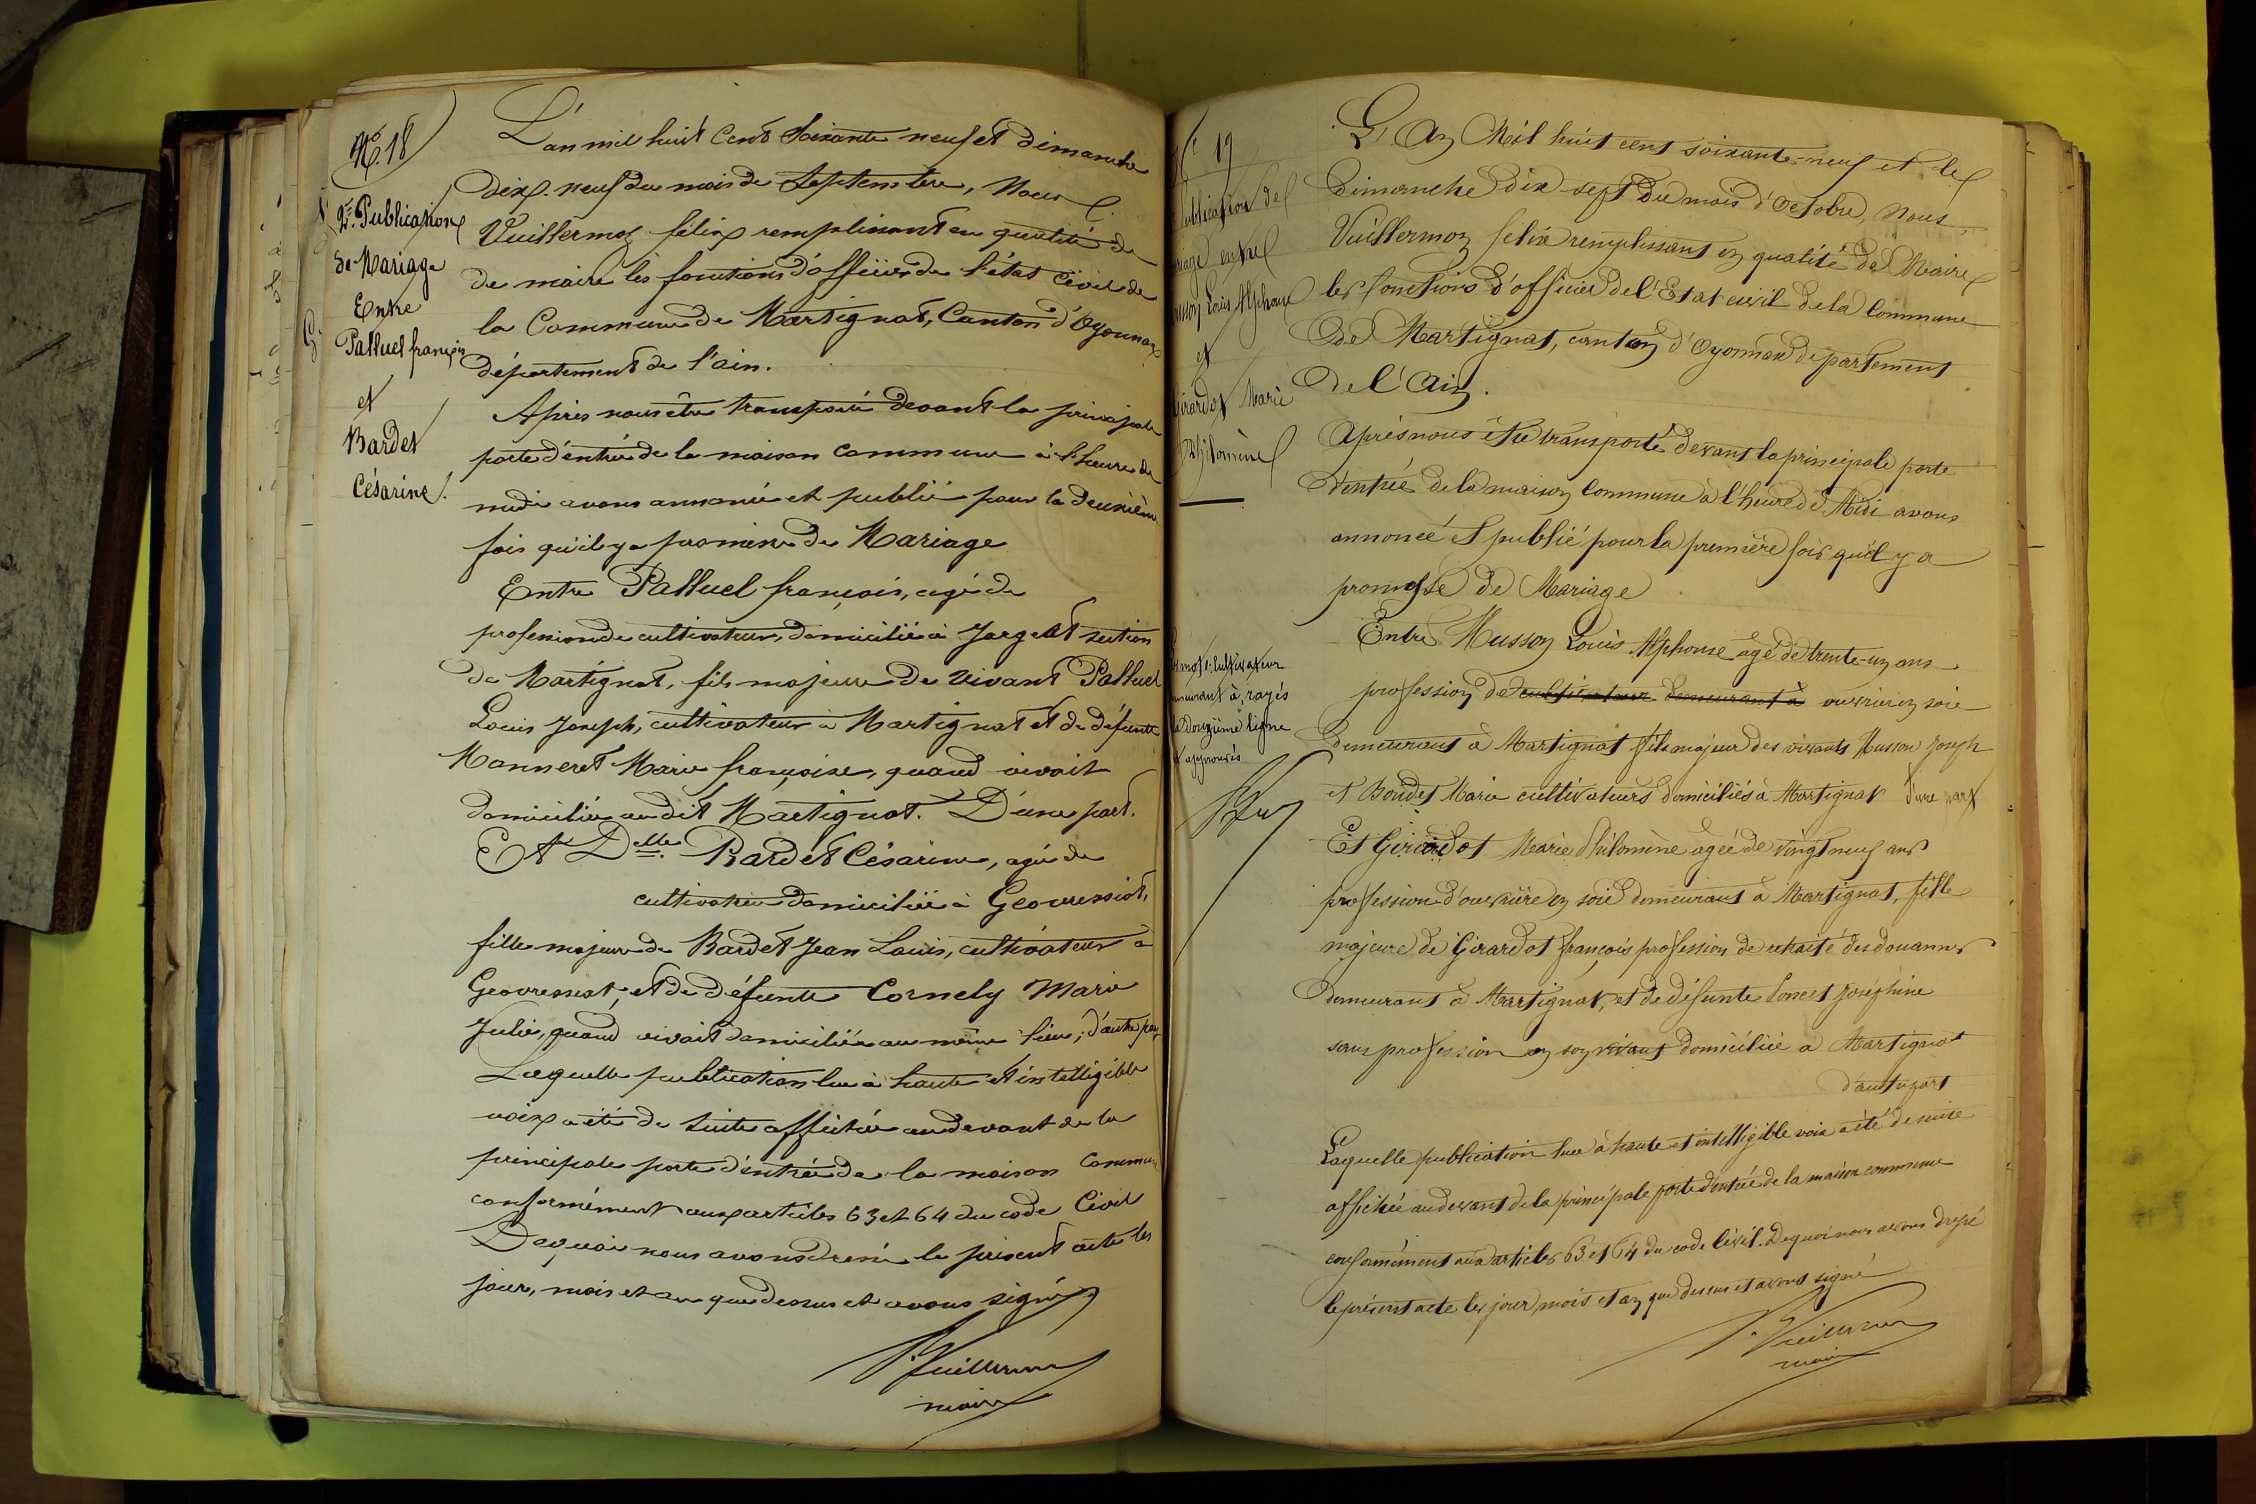 N° 18
2e Publication
de Mariage
Entre
Palluel françois
et
Bardet
Césarine.
L'an mil huit Cent Soixante neuf et dimanche
dix-neuf du mois de Septembre, Nous
Vuillermoz félix remplissant en qualité de
de maire les fonctions d'officier de l'état civil de
la Commune de Martignat, Canton d'Oyonnax
département de l'ain.
Après nous être transporté devant la principale
porte d'entrée de la maison commune à l'heure de
midi avons annoncé et publié pour la deuxième
fois qu'il y a promesse de Mariage
Entre Palluel françois, agé de
profession de cultivateur, domicilié à Jargeat section
de Martignat, fils majeur de vivant Palluel
Louis Joseph, cultivateur à Martignat et de défunte
Manneret Marie françoise, quand vivait
domiciliée au dit Martignat. D'une part.
Et Delle Bardet Césarine, agée de
cultivatrice domiciliée à Geovressiat,
fille majeure de Bardet Jean Louis, cultivateur à
Geovressiat, et de défunte Cornely Marie
Julie, quand vivait domiciliée au même lieu; d'autre part
Laquelle publication lue à haute et intelligible
voix a été de suite affichée au devant de la
principale porte d'entrée de la maison Commune
conformément aux articles 63 et 64 du code Civil
De quoi nous avons dressé le présent acte les
jour, mois et an que dessus et avons signé
Vuillermoz
maire
19
Publication de
mariage entre
Husson Louis Alphonse
et
Girardot Marie
Philomène
L'An Mil huit cent soixante-neuf et le
Dimanche dix sept du mois d'Octobre, Nous
Vuillermoz félix remplissant en qualité de Maire
les fonctions d'officier de l'Etat civil de la Commune
de Martignat, canton d'Oyonnax département
de l'Ain.
Après nous être transporté devant la principale porte
d'entrée de la maison Commune à l'heure de Midi avons
annoncé et publié pour la première fois qu'il y a
promesse de Mariage
Entre Husson Louis Alphonse agé de trente-un ans
profession de cultivateur demeurant à ouvrier en soie
demeurant à Martignat fils majeur des vivants Husson Joseph
et Boudet Marie cultivateurs domiciliés à Martignat d'une part
Et Girardot Marie Philomène agée de vingt neuf ans
profession d'ouvrière en soie demeurant à Martignat, fille
majeure de Girardot françois profession de retraité des douannes
demeurant à Martignat, et de défunte Poncet Joséphine
sans profession en son vivant domiciliée à Martignat
d'autre part
Laquelle publication lue à haute et intelligible voix a été de suite
affichée au devant de la principale porte d'entrée de la maison commune
conformément aux articles 63 et 64 du code Civil. De quoi nous avons dressé
le présent acte les jour, mois et an que dessus et avons signé
Vuillermoz
maire
mots: cultivateur
demeurant à, rayés
la douzième ligne
approuvés